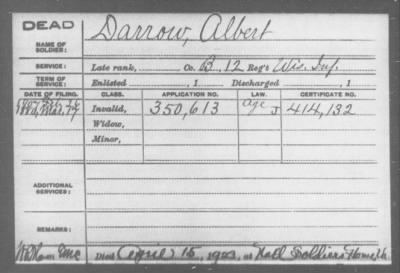 DEAD
Darrow, Albert
NAME OF SOLDIER:
SERVICE: Late rank, Co. B. 12 Reg't Wis. Inf.
TERM OF SERVICE: Enlisted , 1 Discharged , 1
DATE OF FILING. CLASS. APPLICATION NO. LAW. CERTIFICATE NO.
Invalid, 350,613 Age J 414,132
Widow,
Minor,
ADDITIONAL SERVICES:
REMARKS:
Died April 15, 1923, at Natl Soldiers Home